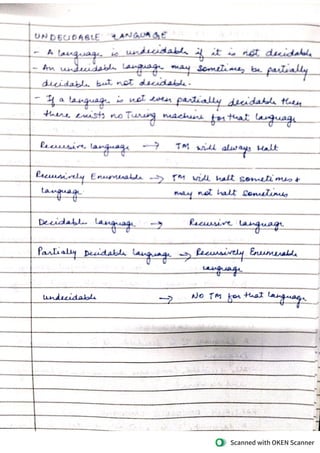 UNDECIDABLE LANGUAGE
- A language is undecidable if it is not decidable
- An undecidable language may sometimes be partially
decidable but not decidable.
- If a language is not even partially decidable then
there exists no Turing machine for that language
Recursive language → TM will always Halt
Recursively Enumerable → TM will halt sometimes &
language may not halt sometimes
Decidable language → Recursive language
Partially Decidable language → Recursively Enumerable
language
undecidable → NO TM for that language
Scanned with OKEN Scanner